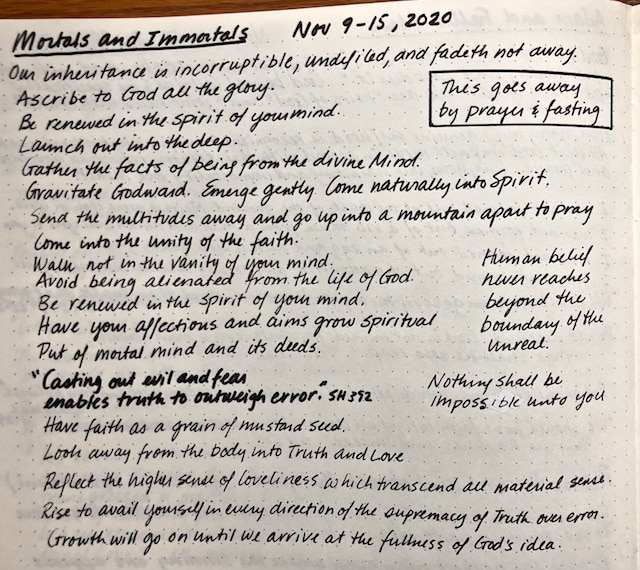 Mortals and Immortals Nov 9-15, 2020
Our inheritance is incorruptible, undefiled, and fadeth not away.
Ascribe to God all the glory.
This goes away
by prayer & fasting
Be renewed in the spirit of your mind.
Launch out into the deep.
Gather the facts of being from the divine Mind.
Gravitate Godward. Emerge gently. Come naturally into Spirit.
Send the multitudes away and go up into a mountain apart to pray
Come into the unity of the faith.
Walk not in the vanity of your mind.
Avoid being alienated from the life of God.
Be renewed in the spirit of your mind.
Have your affections and aims grow spiritual
Put of mortal mind and its deeds.
Human belief
never reaches
beyond the
boundary of the
unreal.
"Casting out evil and fear
enables truth to outweigh error." SH 392
Nothing shall be
impossible unto you
Have faith as a grain of mustard seed.
Look away from the body into Truth and Love
Reflect the higher sense of loveliness which transcend all material sense.
Rise to avail yourself in every direction of the supremacy of Truth over error.
Growth will go on until we arrive at the fullness of God's idea.